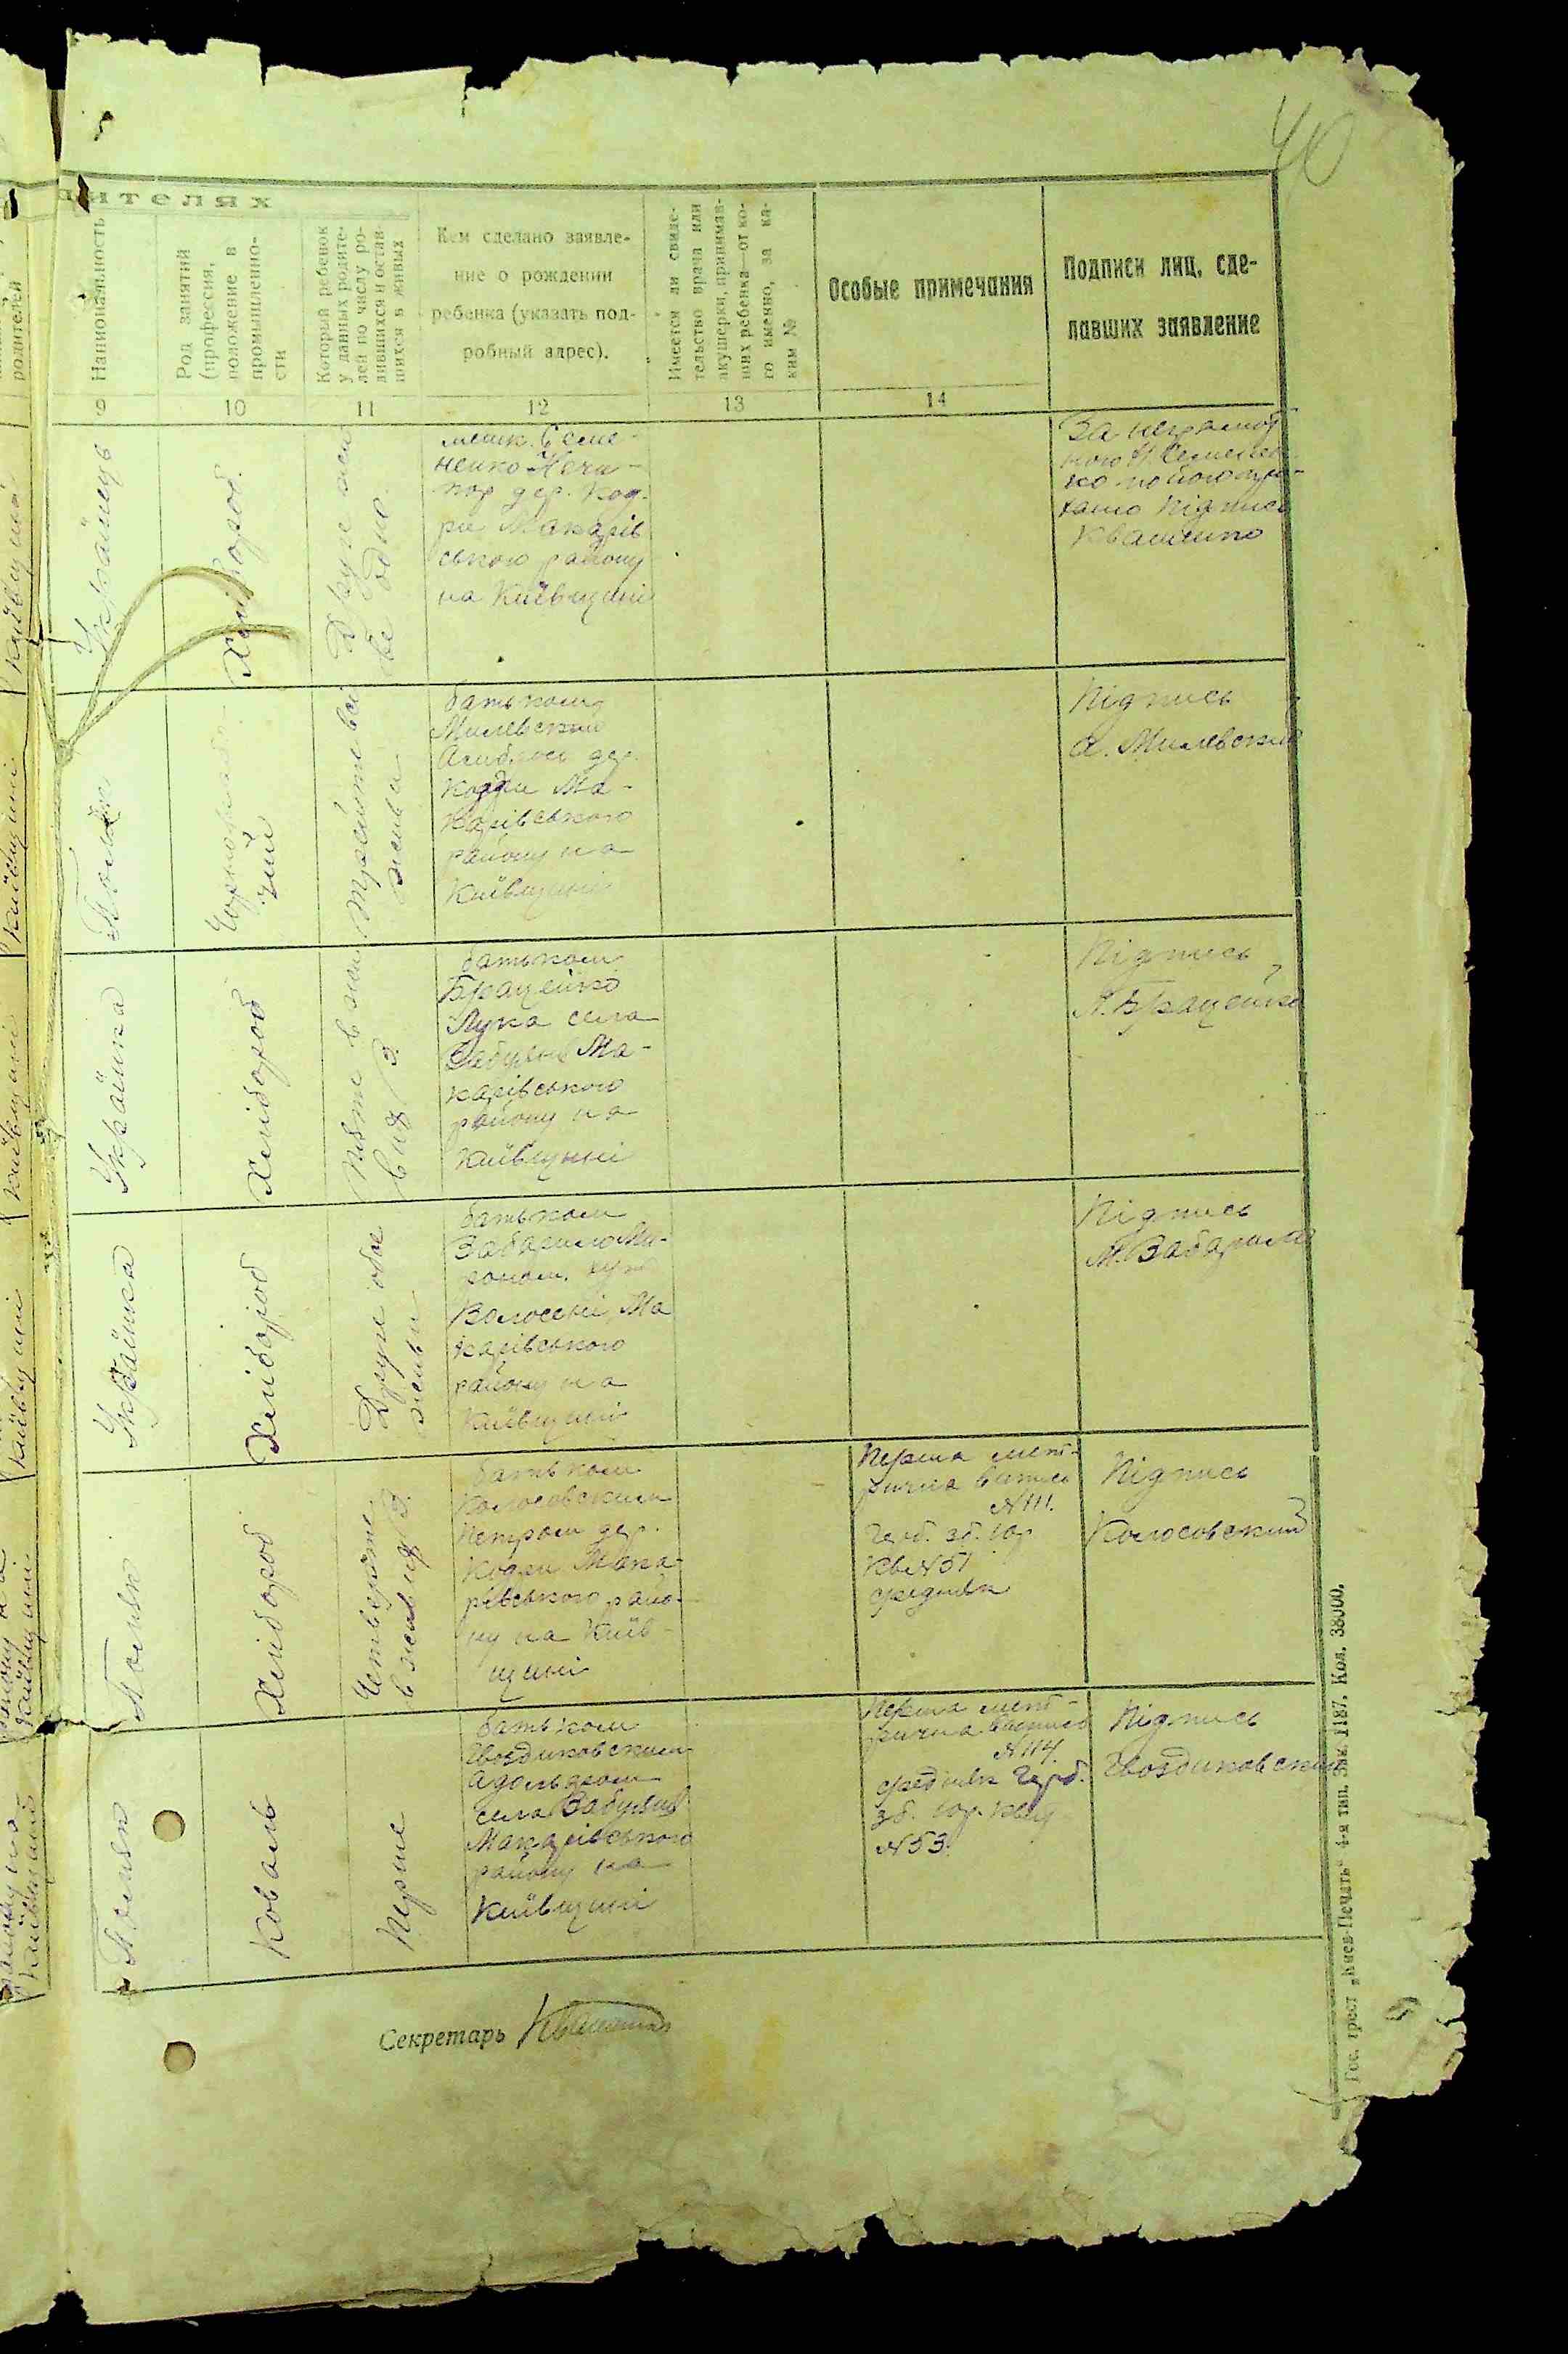 40
дителях
Национальность
Род занятий
(профессия,
положение в
промышленно-
сти
Который ребенок
у данных родите-
лей по числу ро-
дившихся и остав-
шихся в живых
Кем сделано заявле-
ние о рождении
ребенка (указать под-
робный адрес).
Имеется ли свиде-
тельство врача или
акушерки, принимав-
ших ребенка—от ко-
го именно, за ка-
ким №
Особые примечания
Подписи лиц, сде-
лавших заявление
9 10 11 12 13 14
Українець
Хлібороб
Друге
одно
мешк. Семе-
ненко Ничи-
пор дер. Код-
ри Макарів
ського району
на Київщині
За неграмот
ного Н. Семенен
ко по його про-
ханю підпись
Квашенко
Поляк
Чорноробо-
чий
Третє всі
живи
батьком
Милевский
дер.
Кодри Ма-
карівського
району на
Київщині
Підпись
А. Милевский
Українка
Хлібороб
Пяте в жи
вих 3
батьком
Брацейко
Лука села
Забуяне Ма-
карівського
району на
Київщині
Підпись
Л. Брацейко
Українка
Хлібороб
Друге обоє
живи
батьком
Забарило Ми-
роном, хут
Волосені Ма
карівського
району на
Київщині
Підпись
М. Забарило
Поляк
Хлібороб
Четверте
в живих 3
батьком
Колосовским
Петром дер.
Кодри Мака-
рівського райо-
ну на Київ-
щині
Перша мет-
рична випись
№ 111.
Герб. зб. 10р
Кв № 51
средняк
Підпись
Колосовский
Поляк
Коваль
Перше
батьком
Гвоздиковским
Адольфом
села Забуяня
Макарівського
району на
Київщині
Перша мет-
рична випись
№ 114.
средняк Герб.
зб. 10р. Квит
№ 53.
Підпись
Гвоздиковский
Секретарь Квашенко
Гос. трест „Киев-Печать“ 4-я тип. Зак. 1187. Кол. 38000.